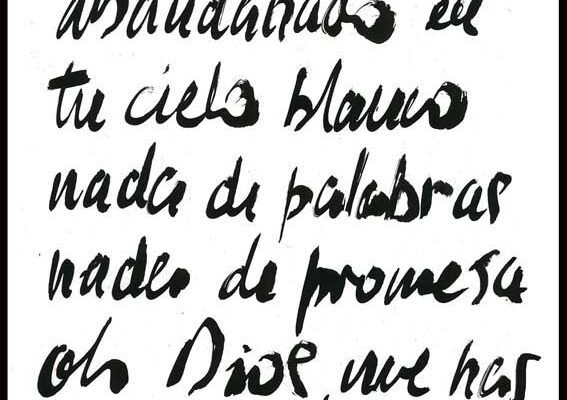 abandonado en
tu cielo blanco
nada de palabras
nada de promesa
oh Dios, me has